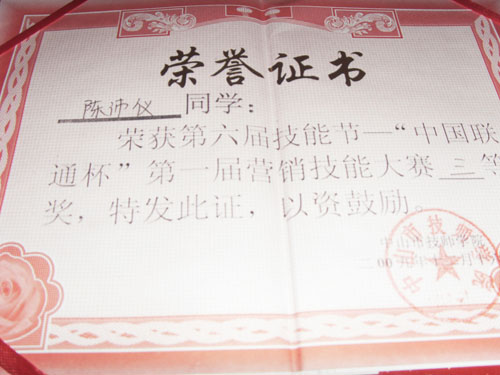 荣誉证书
陈沛仪 同学：
荣获第六届技能节—“中国联
通杯”第一届营销技能大赛 三 等
奖，特发此证，以资鼓励。
中山市技师学院